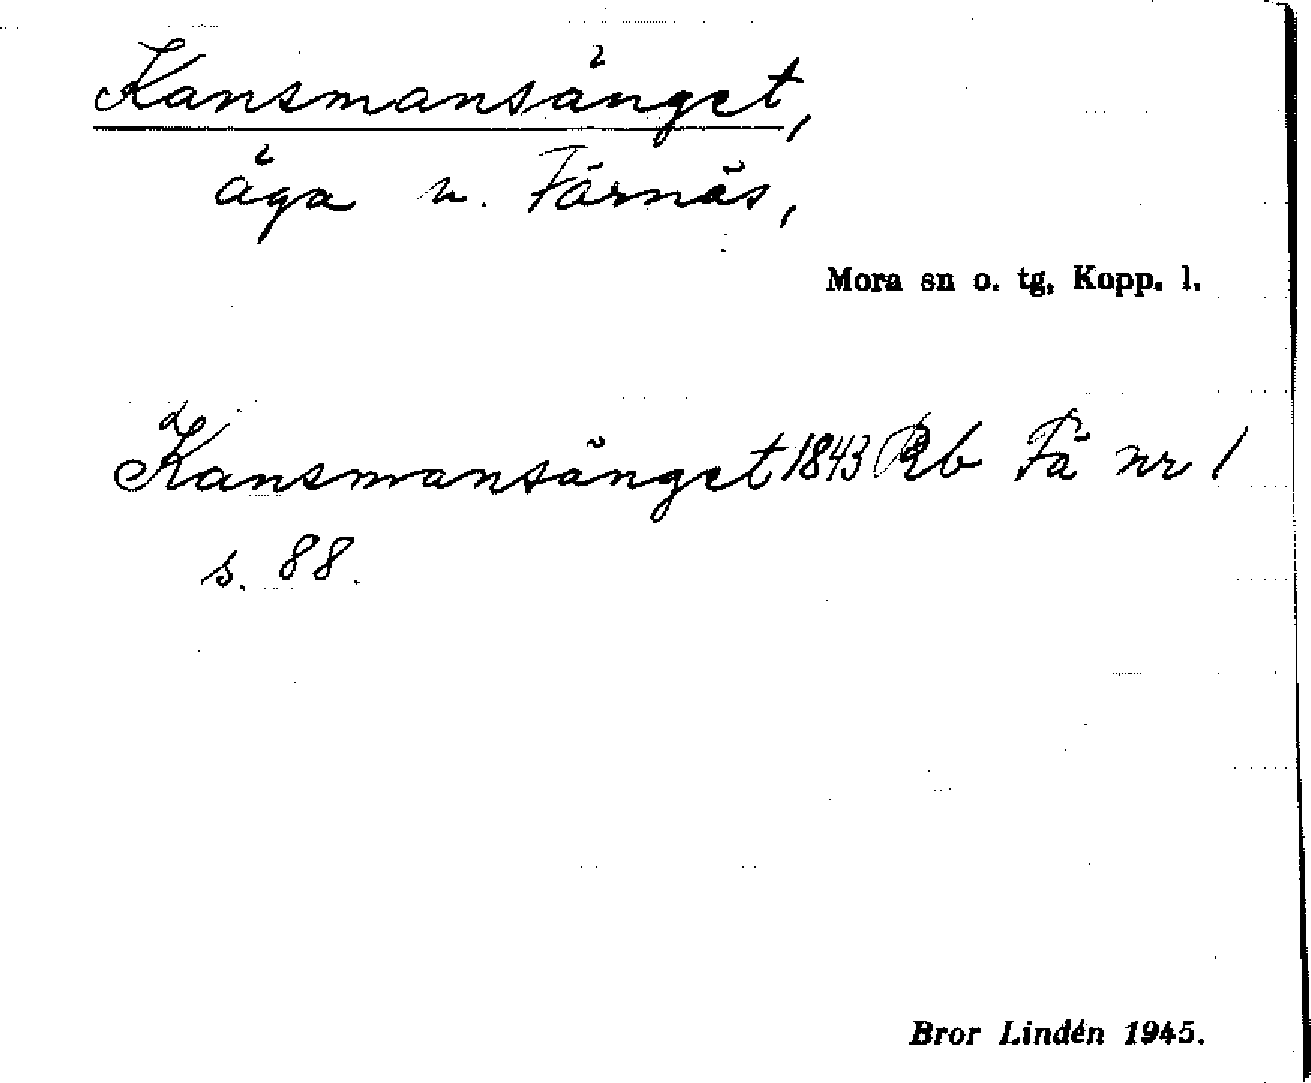 Kansmansänget,
äga v. Färnäs,
Mora sn o. tg, Kopp. l.
Kansmansänget 1843 Rb Fä nr 1
s. 88.
Bror Lindén 1945.